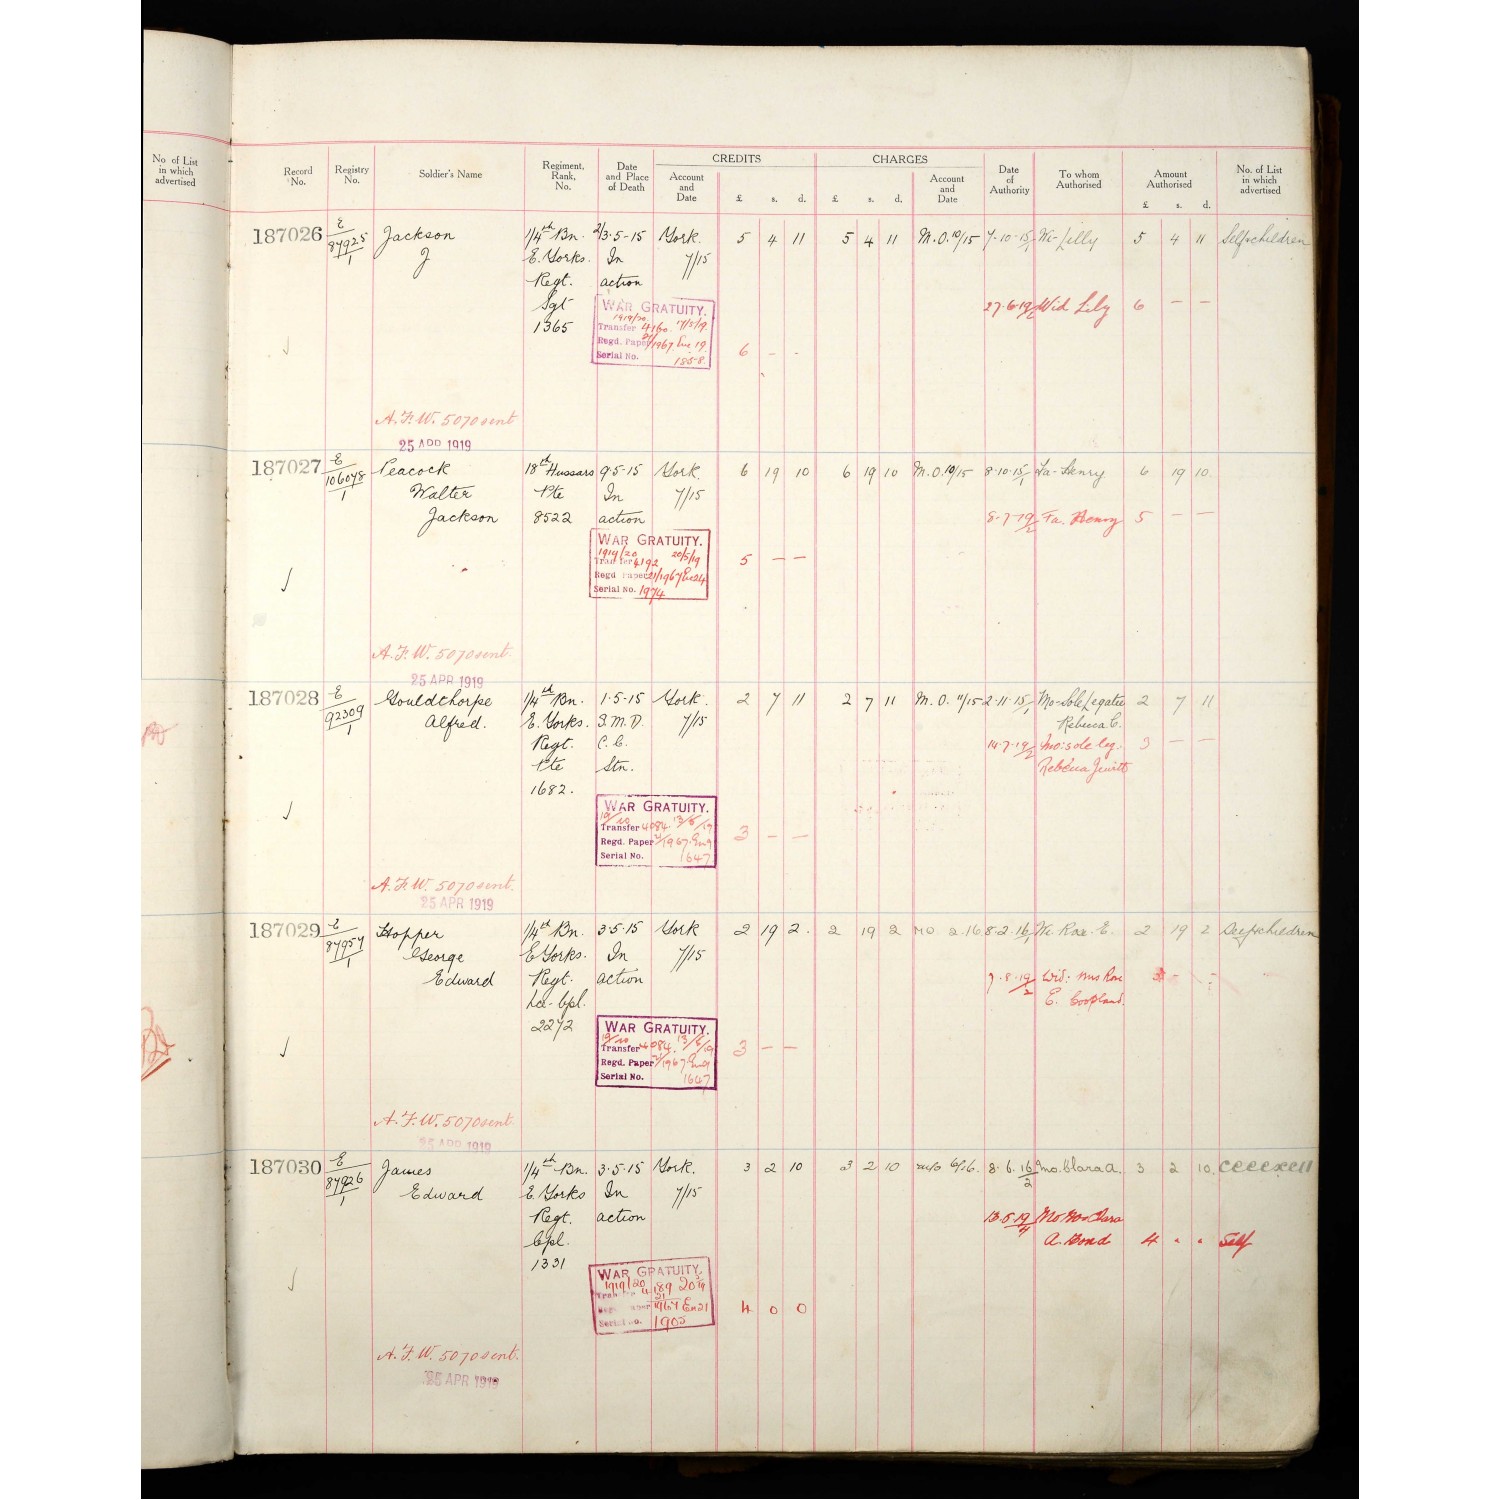 No. of List
in which
advertised
CREDITS
CHARGES
Record
No.
Registry
No.
Soldier's Name
Regiment,
Rank,
No.
Date
and Place
of Death
Account
and
Date
£ s. d.
£ s. d.
Account
and
Date
Date
of
Authority
To whom
Authorised
Amount
Authorised
£ s. d.
No. of List
in which
advertised
187026 E/87925/1 Jackson 1/4th Bn. 2/3.5.15 York. 5 4 11 5 4 11 M.O. 10/15 7.10.15/1 Wi-Lilly 5 4 11 Self+children
J E. Yorks. In 7/15
Regt. action
Sgt 27.6.19/2 Wid Lily 6 — —
1365
WAR GRATUITY.
1919/20
Transfer 4160 17/5/19.
Regd. Paper 21/1967 Enc 19.
Serial No. 1858.
6 - -
A.F.W. 5070 sent
25 APR 1919
187027 E/106078/1 Peacock 18th Hussars 9.5.15 York. 6 19 10 6 19 10 M.O. 10/15 8.10.15/1 Fa-Henry 6 19 10.
Walter Pte In 7/15
Jackson 8522 action 8.7.19/2 Fa. Henry 5 — —
WAR GRATUITY.
1919/20 20/5/19
Transfer 4192
Regd Paper 21/1967/En 24
Serial No. 1974
5 — —
A.F.W. 5070 sent.
25 APR 1919
187028 E/92309/1 Gouldthorpe 1/4th Bn. 1.5.15 York. 2 7 11 2 7 11 M.O. 11/15 2.11.15/1 Mo-Sole Legatee 2 7 11
Alfred. E. Yorks. 7/15 Rebecca C.
Regt. C.C. 14.7.19/2 Mo: sole leg. 3 — —
Pte Stn. Rebecca
1682.
WAR GRATUITY.
19/20
Transfer 4084. 13/6/19
Regd. Paper 21/1967. En 9
Serial No. 1647
3 — —
A.F.W. 5070 sent.
25 APR 1919
187029 E/87957/1 Hopper 1/4th Bn. 3.5.15 York 2 19 2. 2 19 2 MO 2.16 8.2.16/1 Wi. Rose. E. 2 19 2 Self+children
George E Yorks. In 7/15
Edward Regt. action 7.8.19/2 Wid: Mrs Rose 3 - -
Lce. Cpl. E. Coopland.
2272
WAR GRATUITY.
19/20
Transfer 4084. 13/6/19
Regd. Paper 21/1967. En 9
Serial No. 1647
3 — —
A.F.W. 5070 sent.
25 APR 1919
187030 E/87926/1 James 1/4th Bn. 3.5.15 York. 3 2 10 3 2 10 M/O 6/16. 8.6.16/2 Mo. Clara A. 3 2 10.
Edward E. Yorks In 7/15
Regt. action 13.8.19/4 Mo Clara
Cpl. A. Bond 4 . . Self
1331
WAR GRATUITY.
1919/20 4189 20/5/19
Transfer
Regd. Paper 21/1967 En 21
Serial No. 1905
4 0 0
A.F.W. 5070 sent.
25 APR 1919